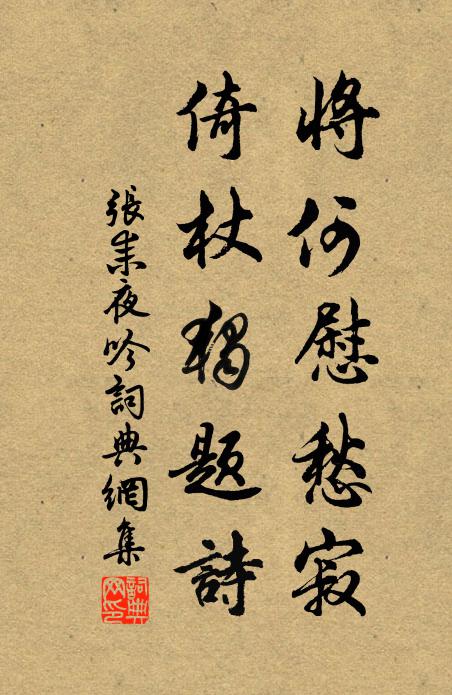 將何慰愁寂
倚杖獨題詩
張耒夜吟詞典網集
詞典網印